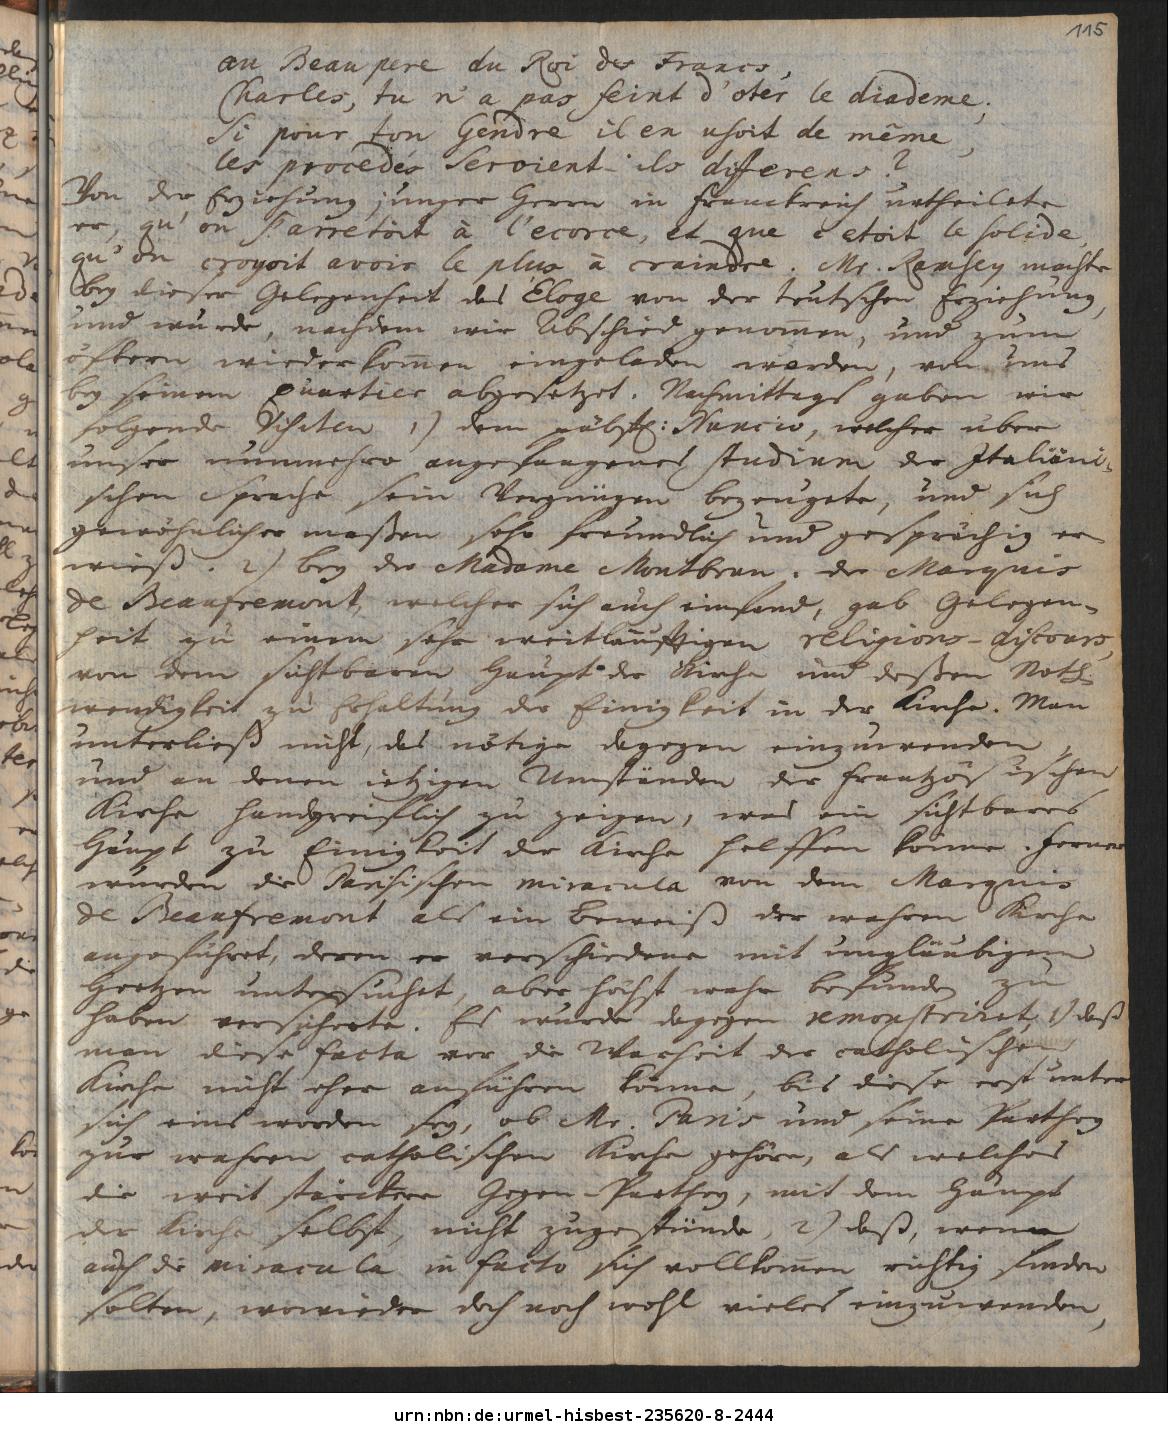 115
au Beau pere du Roi des Francs,
Charles, tu n'a pas feint d'oter le diademe;
Si pour ton Gendre il en usoit de même,
les procedés Seroient-ils differens?
Von der Erziehung junger Herrn in Franckreich urtheilete
er, qu'on s'arrêtoit à l'ecorce, et que c'etoit le solide,
qu'on croyoit avoir le plus à craindre. Mr. Ramsey machte
bey dieser Gelegenheit das Eloge von der teutschen Erziehung,
und wurde, nachdem wir Abschied genom̄en, und zum
öftern wiederkom̄en eingeladen worden, von uns
bey seinem Quartier abgesetzet. Nachmittags gaben wir
folgende Visiten 1) dem päbstl: Nuncio, welcher uber
unser nunmehro angefangenes studium der Italiäni-
schen Sprache sein Vergnügen bezeugete, und sich
gewöhnlicher maßen sehr freundlich und gesprächig er-
wieß. 2) bey der Madame Montbrun. der Marquis
de Beaufremont, welcher sich auch einfand, gab Gelegen-
heit zu einem sehr weitläufftigen religions-discours,
von dem sichtbaren Haupt der Kirche und deßen Noth-
wendigkeit zu Erhaltung der Einigkeit in der Kirche. Man
unterließ nicht, das nötige dagegen einzuwenden,
und an denen ietzigen Umständen der frantzösischen
Kirche handgreiflich zu zeigen, was ein sichtbares
Haupt zu Einigkeit der Kirche helffen könne. Ferner
wurden die Parisischen miracula von dem Marquis
de Beaufremont als ein Beweiß der wahren Kirche
angeführet, deren er verschiedene mit ungläubigem
Hertzen untersuchet, aber höchst wahr befunden zu
haben versicherte. Es wurde dagegen remonstriret, 1) daß
man diese facta vor die Warheit der catholischen
Kirche nicht eher anführen könne, bis diese erst unter
sich eins worden sey, ob Mr. Paris und seine Parthey
zur wahren catholischen Kirche gehöre, als welches
die weit stärckere Gegen-Parthey, mit dem Haupt
der Kirche selbst, nicht zugestünde, 2) daß, wenn
auch die miracula in facto sich vollkom̄en richtig finden
solten, wowieder doch noch wohl vieles einzuwenden,
urn:nbn:de:urmel-hisbest-235620-8-2444